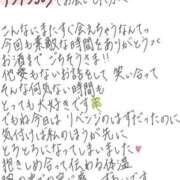 こんなにまたすぐ会えちゃうなんてっ
今回も素敵な時間をありがとうっ
お酒まで ごちそうさま!!
他愛もないお話をして 笑い合って
そんな何気ない時間も
とっても大好きです
でもね今日は リベンジのはずだったのに
気付けば私のほうが先に
とろとろになってしまいました
抱きしめ合って伝わる体温